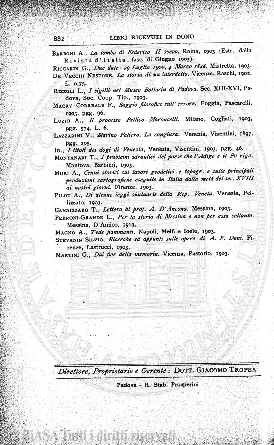 882 LIBRI RICEVUTI IN DONO
BARBONI A., La tomba di Federico II svevo. Roma, 1903 (Estr. dalla
Rivista d'Italia, fasc. di Giugno 1903).
RICCIARDI G., Due date: 29 Luglio 1900, 4 Marzo 1848. Mistretta, 1903.
DE VECCHI NESTORE, La storia di un interdetto. Vicenza, Raschi, 1902.
L. 0.75.
RIZZOLI L., I sigilli nel Museo Bottacin di Padova. Sec. XIII-XVI. Pa-
dova, Soc. Coop. Tip., 1903.
F., Saggio filosofico sull'errore. Foggia, Pascarelli,
1903, pag. 96.
LUZIO A., Il processo Pellico Maroncelli. Milano, Cogliati, 1903,
pag. 574. L. 6.
LAZZARINI V., Marino Faliero. La congiura. Venezia, Visentini, 1897
pag. 205.
ID., I titoli dei dogi di Venezia, Venezia, Visentini, 1903, pag. 46.
MONTANARI T., I problemi idraulici del paese tra l'Adige e il Po
Mantova, Barbieri, 1903.
MORI A., Cenni storici sui lavori geodetici e topogr. e sulle principali
produzioni cartografiche eseguite in Italia dalla metà del sec. XVIII
ai nostri giorni. Firenze, 1903.
PILOT A., Di alcune leggi suntuarie della Rep. Veneta. Venezia, Pel-
lizzato, 1903.
CANNIZZARO T., Lettera al prof. A. D'Ancona. Messina, 1903.
FERRONI-GRANDE L., Per la storia di Messina e non per essa soltanto.
Messina, D'Amico, 1903.
MAGNO A., Fede fiammante. Napoli, Melfi e Joele, 1903.
SERVADIN SILVIO, Ricerche ed appunti sulle opere di A. F. Doni. Fi-
renze, Lastrucci, 1903.
MARTINI G., Dal fior della memoria. Vicenza, Pastorio, 1903.
Direttore, Proprietario e Gerente: DOTT. GIACOMO TROPEA
Padova - R. Stab. Prosperini
BIASA Tutti i diritti riservati